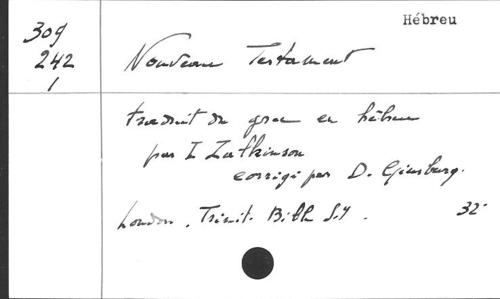 Hébreu
309
242
1
Nouveau Testament
traduit du grec en hébreu
par I Zalkinson
corrigé par D. Ginsburg.
London. Trinit. Bibl. S.y. 32